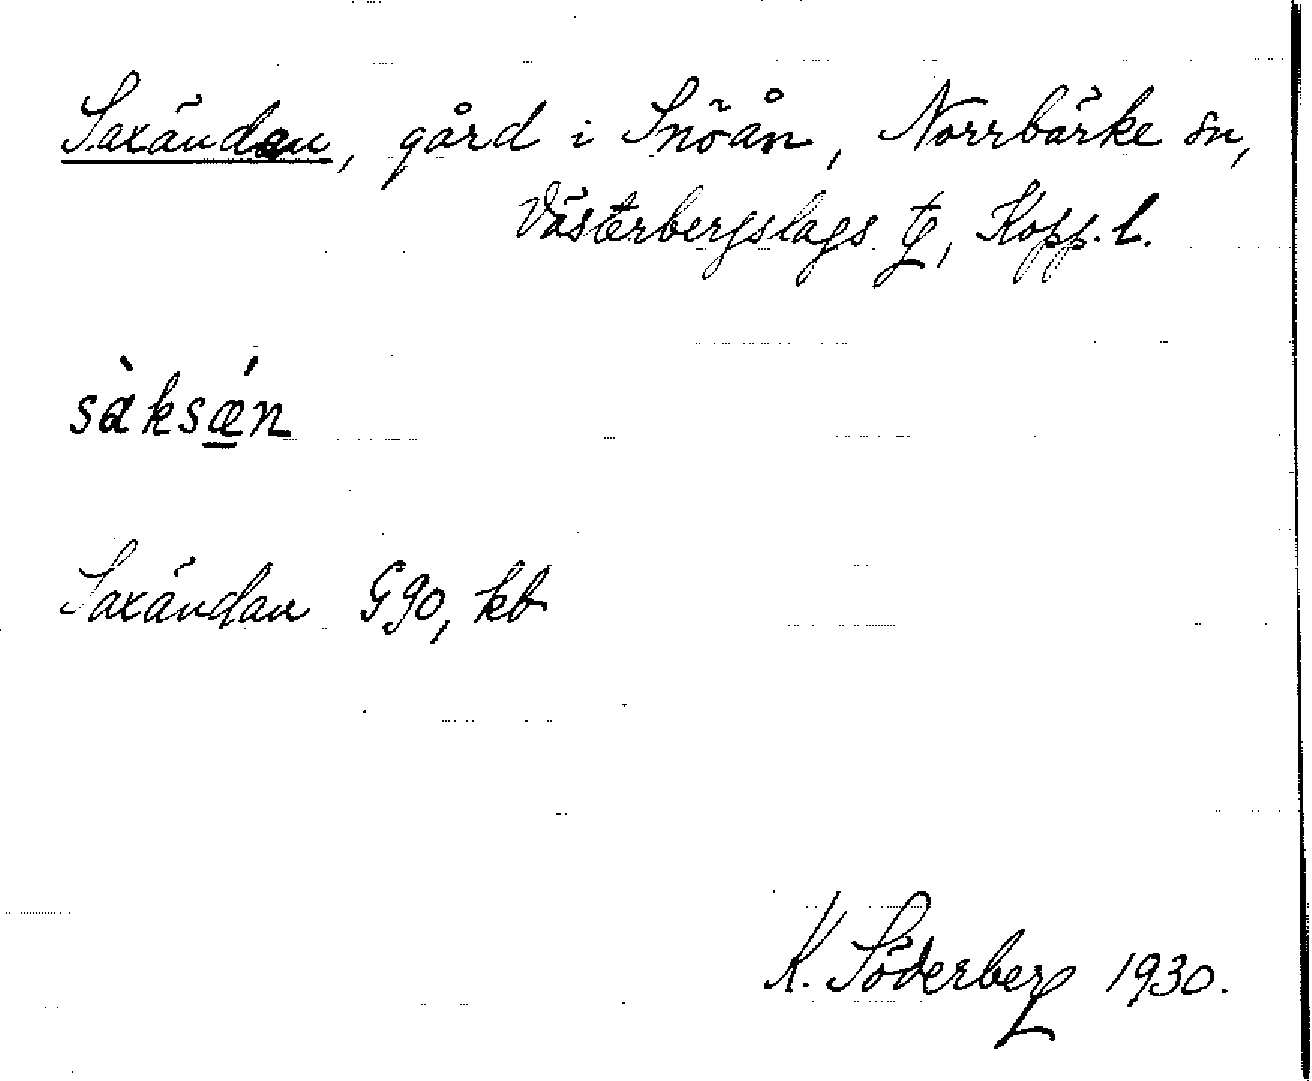 Saxändan, gård i Snöån, Norrbärke sn,
Västerbergslags tg, Kopp. l.
sàksǽn
Saxändan G90, kb
K. Söderberg 1930.